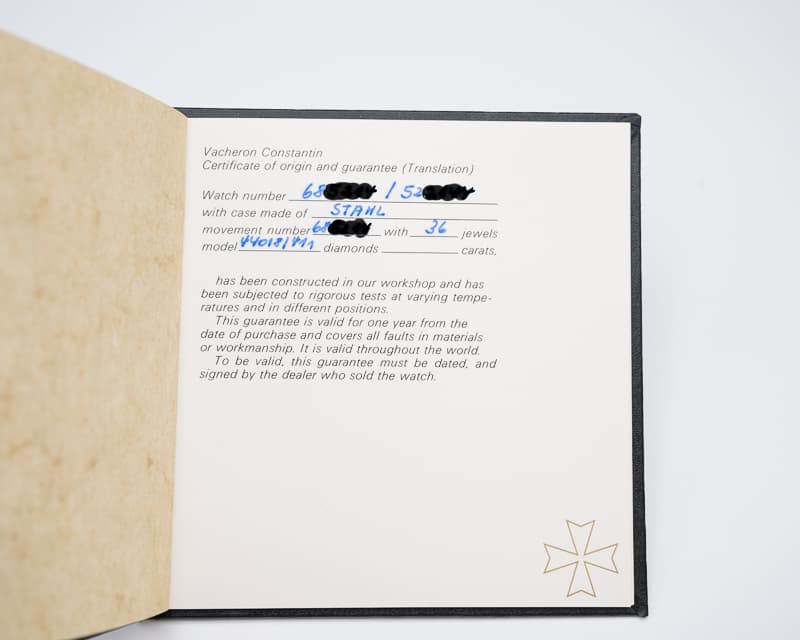 Vacheron Constantin
Certificate of origin and guarantee (Translation)
Watch number 68 / 52
with case made of STAHL
movement number 68 with 36 jewels
model 44018/411 diamonds carats,
has been constructed in our workshop and has
been subjected to rigorous tests at varying tempe-
ratures and in different positions.
This guarantee is valid for one year from the
date of purchase and covers all faults in materials
or workmanship. It is valid throughout the world.
To be valid, this guarantee must be dated, and
signed by the dealer who sold the watch.